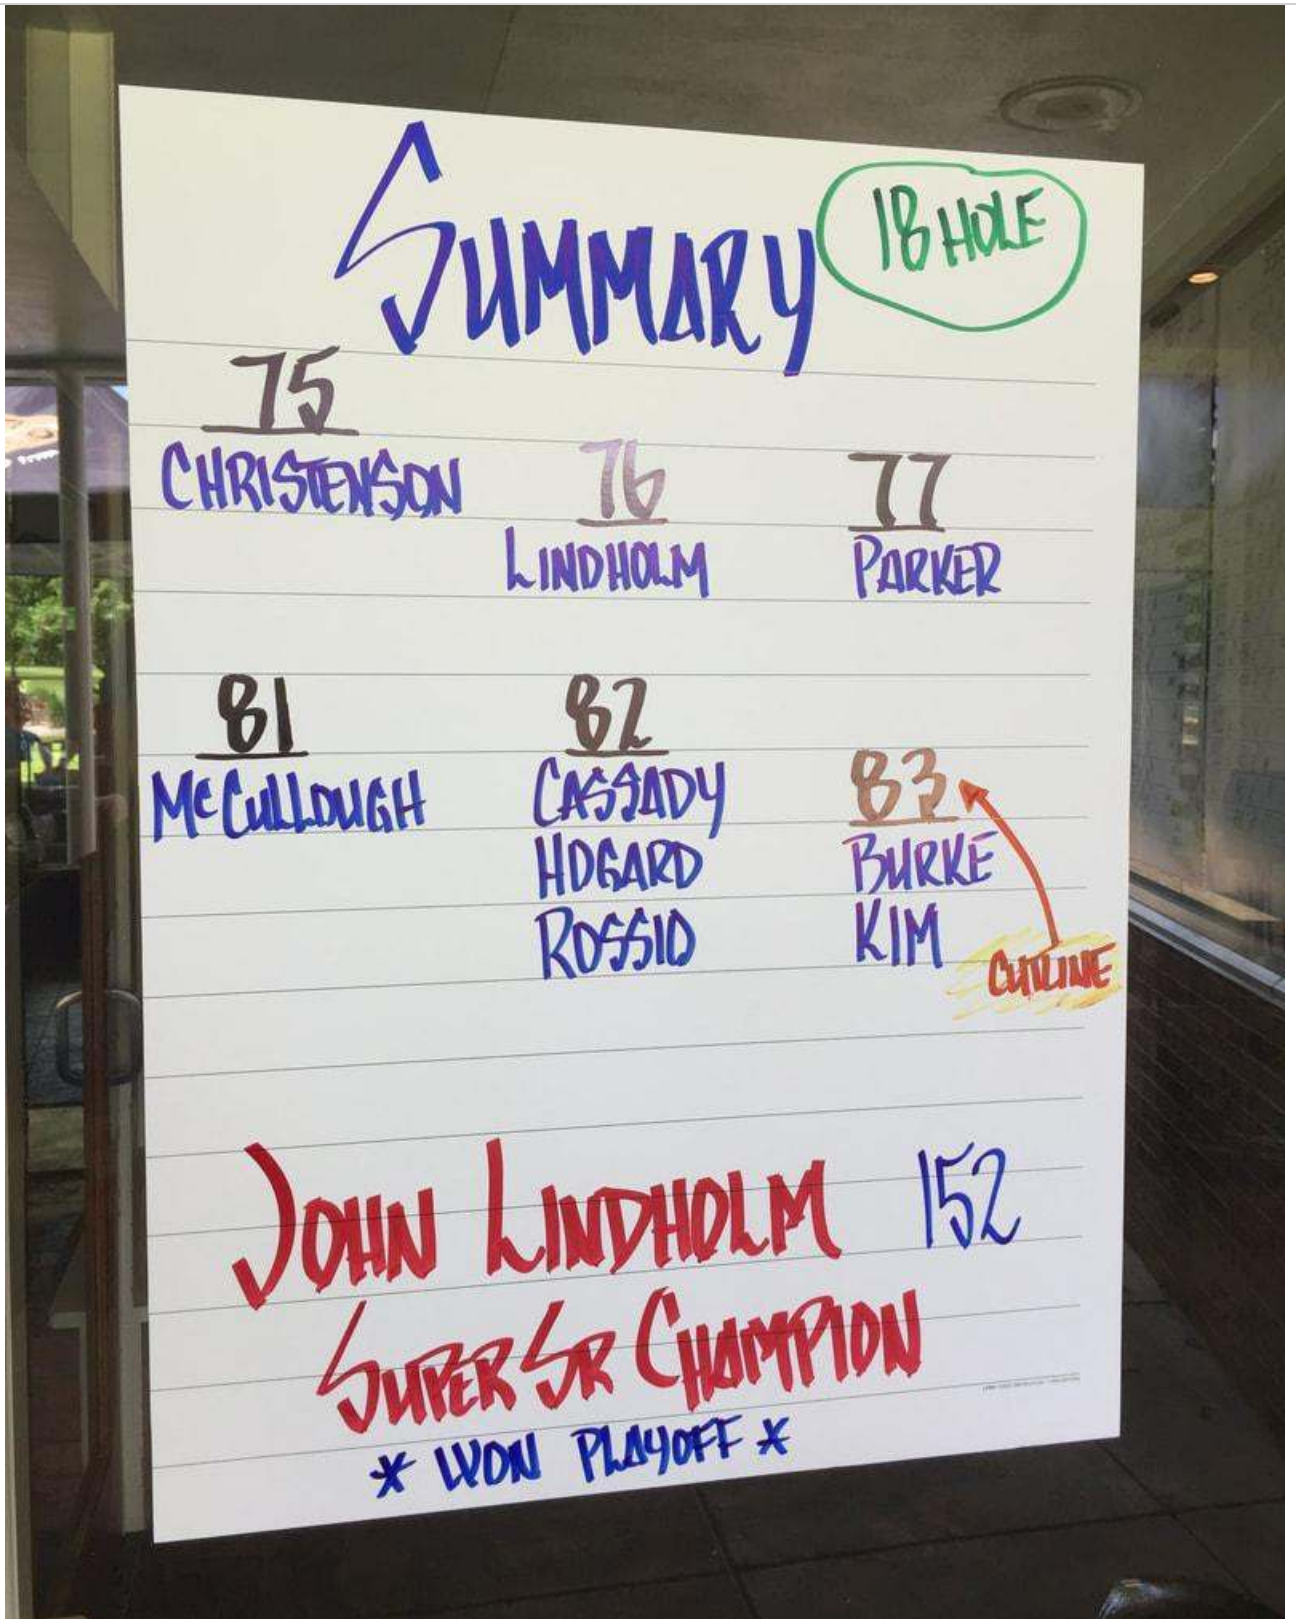 SUMMARY
18 HOLE
75
CHRISTENSON
76
LINDHOLM
77
PARKER
81
McCULLOUGH
82
CASSADY
HOGARD
ROSSIO
83
BURKE
KIM
CUTLINE
JOHN LINDHOLM 152
SUPER SR CHAMPION
* WON PLAYOFF *